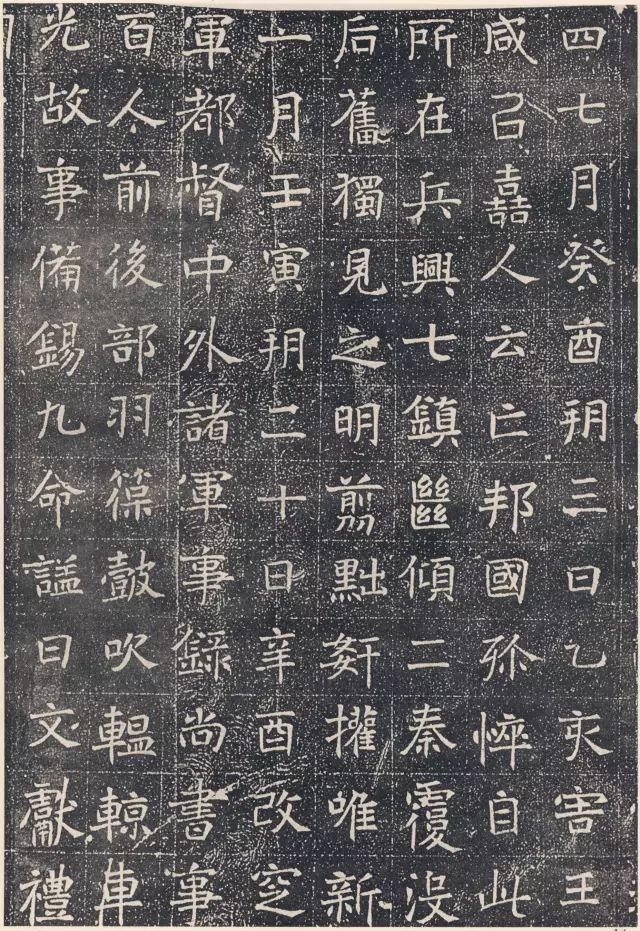 四七月癸酉朔三日乙亥害王
咸㠯嚞人云亡邦國殄悴自此
所在兵興七鎮㡭傾二秦覆没
后舊獨見之明剪黜奸權唯新
一月壬寅朔二十日辛酉改窆
軍都督中外諸軍事録尚書事
百人前後部羽葆鼓吹轀輬車
光故事備錫九命謚曰文獻禮